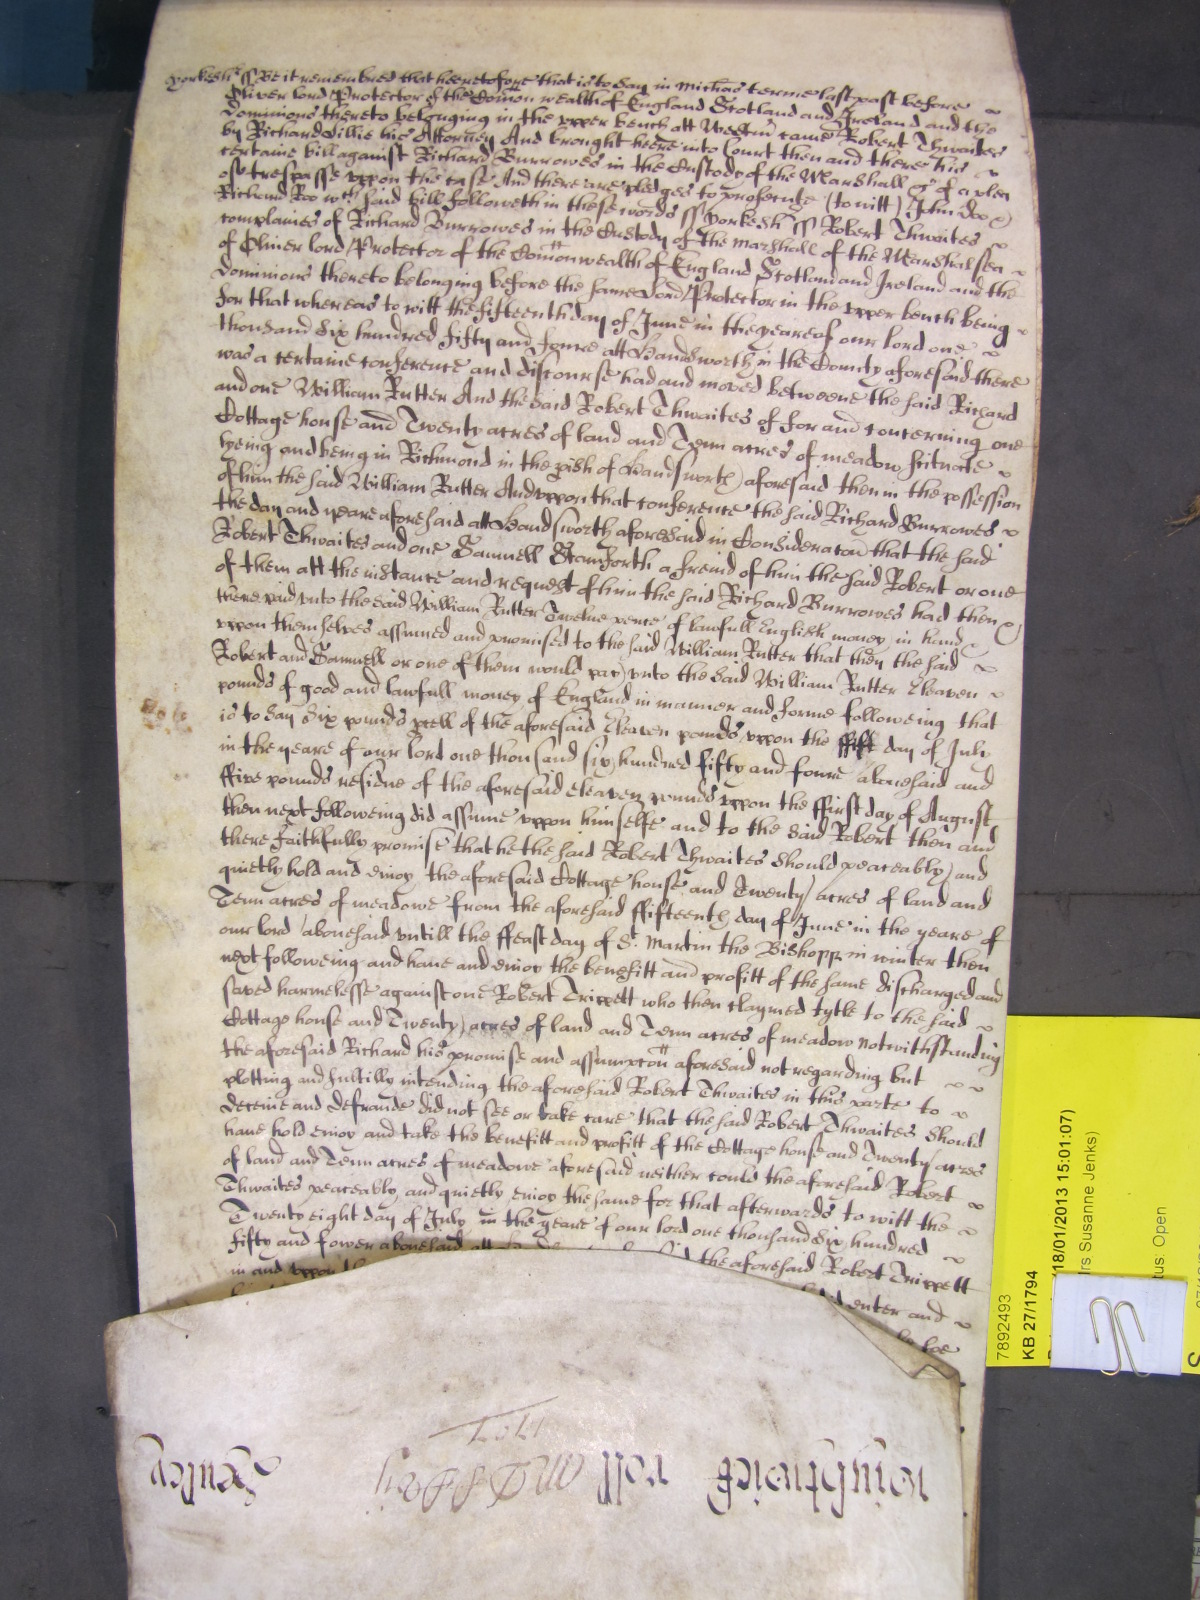 Yorkesh ss Be it remembred that heeretofore that is to say in Michas terme last past before
Oliver lord Protector of the Comon wealth of England Scotland and Ireland and the
dominions thereto belonging in the upper bench att Westm came Robert Thwaites
by Richard Willie his Attorney And brought heere into Court then and there his
certaine bill against Richard Burrowes in the Custody of the Marshall &c of a plea
of trespasse uppon the case And there are pledges to prosecute (to witt) John Doo &
Richard Roo wch said bill followeth in these words ss Yorkesh ss Robert Thwaites
complaines of Richard Burrowes in the Custody of the Marshall of the Marshalsea
of Oliver lord Protector of the Comonwealth of England Scotland and Ireland and the
dominions thereto belonging before the same Lord Protector in the upper bench being
for that whereas to witt the fifteenth day of June in the yeare of our lord one
thousand six hundred fifty and foure att Handsworth in the County aforesaid there
was a certaine conference and discourse had and moved betweene the said Richard
and one William Rutter And the said Robert Thwaites of for and concerning one
Cottage house and Twenty acres of land and Tenn acres of meadow scituate
lyeing and being in Richmond in the pish of Handsworth aforesaid then in the possession
of him the said William Rutter And uppon that conference the said Richard Burrowes
the day and yeare aforesaid att Handsworth aforesaid in Consideracon that the said
Robert Thwaites and one Samuell Staniforth a freind of him the said Robert or one
of them att the instance and request of him the said Richard Burrowes had then &
there paid unto the said William Rutter Twelve pence of lawfull English money in hand
uppon themselves assumed and promised to the said William Rutter that they the said
Robert and Samuell or one of them would pay unto the said William Rutter Eleaven
pounds of good and lawfull money of England in manner and forme followeing that
is to say Six pounds pcell of the aforesaid Eleaven pounds uppon the day of July
in the yeare of our lord one thousand six hundred fifty and foure abovesaid and
ffive pounds residue of the aforesaid eleaven pounds uppon the ffirst day of August
then next followeing did assume uppon himselfe and to the said Robert then and
there faithfully promise that he the said Robert Thwaites should peaceably and
quietly hold and enioy the aforesaid Cottage house and Twenty acres of land and
Tenn acres of meadowe from the aforesaid ffifteenth day of June in the yeare of
our lord abovesaid untill the ffeast day of St Martin the Bishopp in winter then
next followeing and have and enioy the benefitt and profitt of the same discharged and
saved harmelesse against one Robert Trippett who then claymed tytle to the said
Cottage house and Twenty acres of land and Tenn acres of meadow Notwithstanding
the aforesaid Richard his promise and assumpcon aforesaid not regarding but
plotting and subtilly intending the aforesaid Robert Thwaites in this parte to
deceive and defraude did not see or take care that the said Robert Thwaites should
have hold enioy and take the benefitt and profitt of the Cottage house and Twenty acres
of land and Tenn acres of meadowe aforesaid neither could the aforesaid Robert
Thwaites peaceably and quietly enioy the same for that afterwards to witt the
Twenty eight day of July in the yeare of our lord one thousand six hundred
fifty and fower abovesaid att the aforesaid Robert Trippett
in and uppon enter and
7892493
KB 27/1794
18/01/2013 15:01:07)
rs Susanne Jenks)
tus: Open
roll